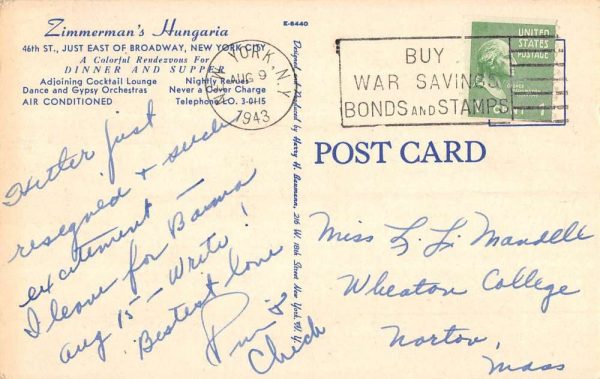 Zimmerman's Hungaria
46th ST., JUST EAST OF BROADWAY, NEW YORK CITY
A Colorful Rendezvous For
DINNER AND SUPPER
Adjoining Cocktail Lounge Nightly Revues
Dance and Gypsy Orchestras Never a Cover Charge
AIR CONDITIONED Telephone LO. 3-0115
E-6440
NEW YORK, N.Y.
AUG 9
1943
BUY
WAR SAVINGS
BONDS AND STAMPS
UNITED
STATES
POSTAGE
1¢
POST CARD
Designed and Produced by Harry H. Baumann, 216 W. 18th Street New York, N. Y.
Hitler just
resegned & such
excitement –
I leave for Bama
aug 15 – Write!
Bestest love
&
Chick
Miss L. Li Mandell
Wheaton College
Norton,
Mass